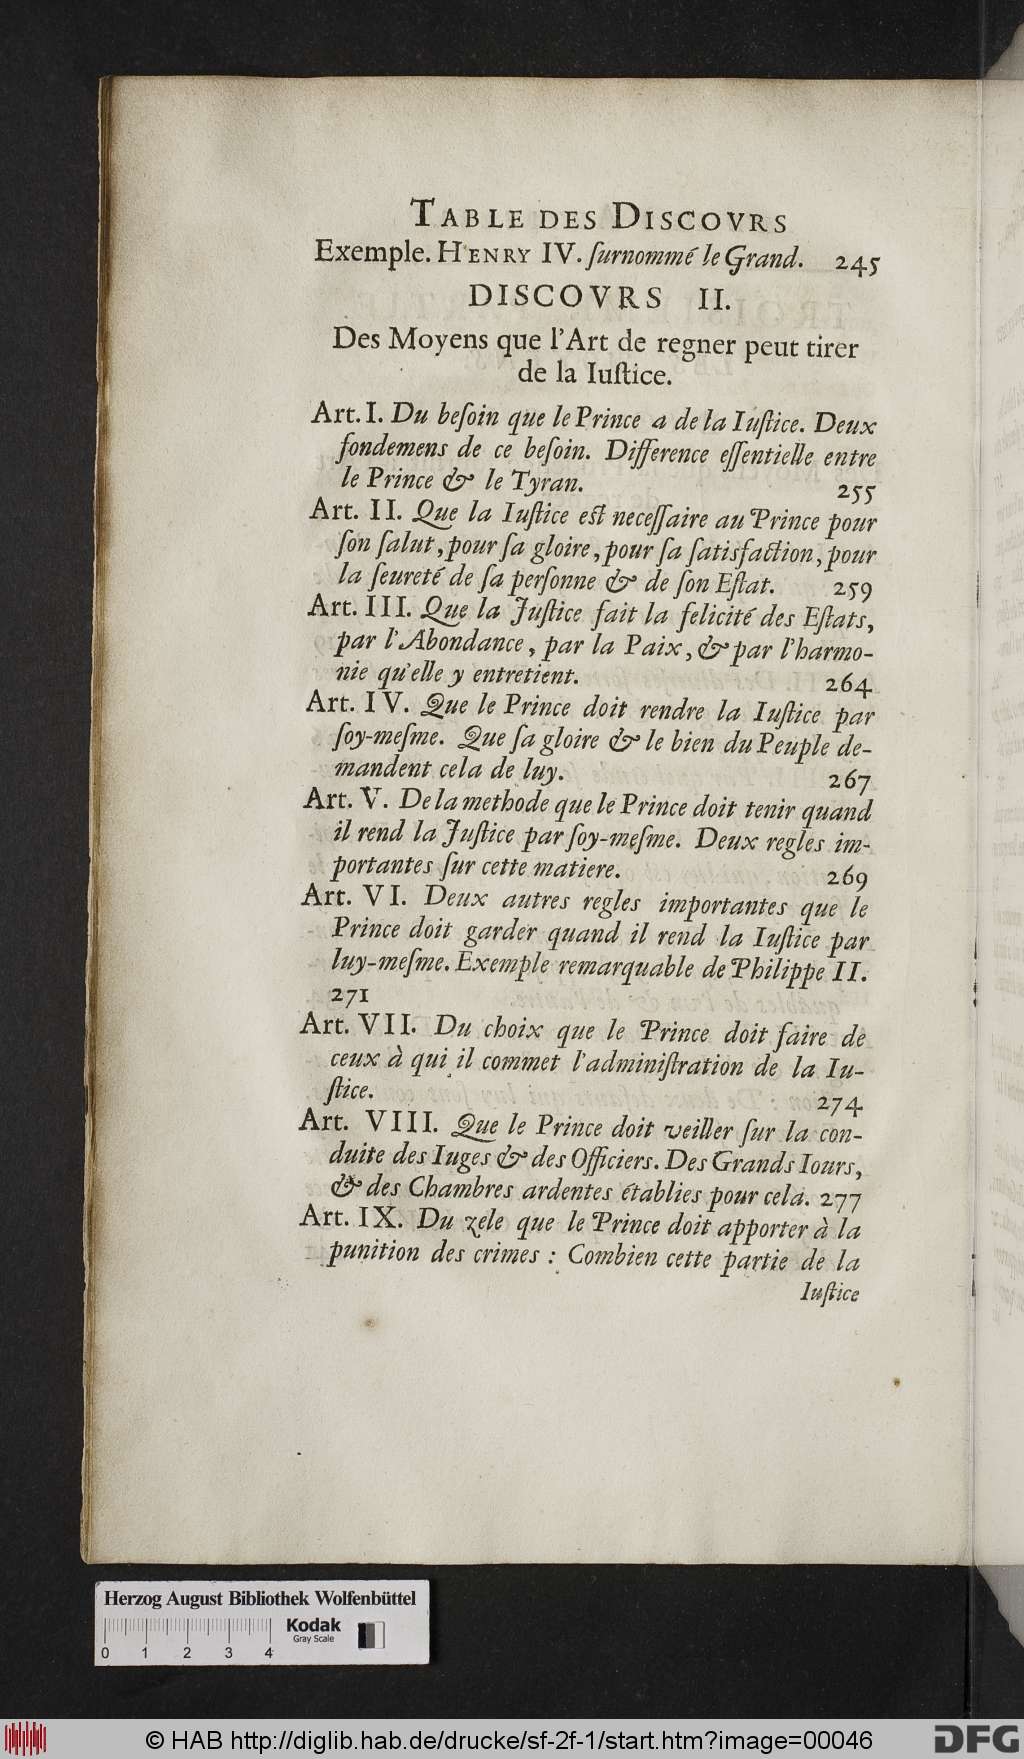 TABLE DES DISCOVRS
Exemple. HENRY IV. ſurnommé le Grand. 245
DISCOVRS II.
Des Moyens que l'Art de regner peut tirer
de la Iuſtice.
Art. I. Du beſoin que le Prince a de la Iuſtice. Deux
fondemens de ce beſoin. Difference eſſentielle entre
le Prince & le Tyran. 255
Art. II. Que la Iuſtice eſt neceſſaire au Prince pour
ſon ſalut, pour ſa gloire, pour ſa ſatisfaction, pour
la ſeureté de ſa perſonne & de ſon Eſtat. 259
Art. III. Que la Juſtice fait la felicité des Eſtats,
par l'Abondance, par la Paix, & par l'harmo-
nie qu'elle y entretient. 264
Art. IV. Que le Prince doit rendre la Iuſtice par
ſoy-meſme. Que ſa gloire & le bien du Peuple de-
mandent cela de luy. 267
Art. V. De la methode que le Prince doit tenir quand
il rend la Juſtice par ſoy-meſme. Deux regles im-
portantes ſur cette matiere. 269
Art. VI. Deux autres regles importantes que le
Prince doit garder quand il rend la Iuſtice par
luy-meſme. Exemple remarquable de Philippe II.
271
Art. VII. Du choix que le Prince doit faire de
ceux à qui il commet l'adminiſtration de la Iu-
ſtice. 274
Art. VIII. Que le Prince doit veiller ſur la con-
duite des Iuges & des Officiers. Des Grands Iours,
& des Chambres ardentes établies pour cela. 277
Art. IX. Du zele que le Prince doit apporter à la
punition des crimes : Combien cette partie de la
Iuſtice
Herzog August Bibliothek Wolfenbüttel
Kodak
Gray Scale
0 1 2 3 4
© HAB http://diglib.hab.de/drucke/sf-2f-1/start.htm?image=00046
DFG